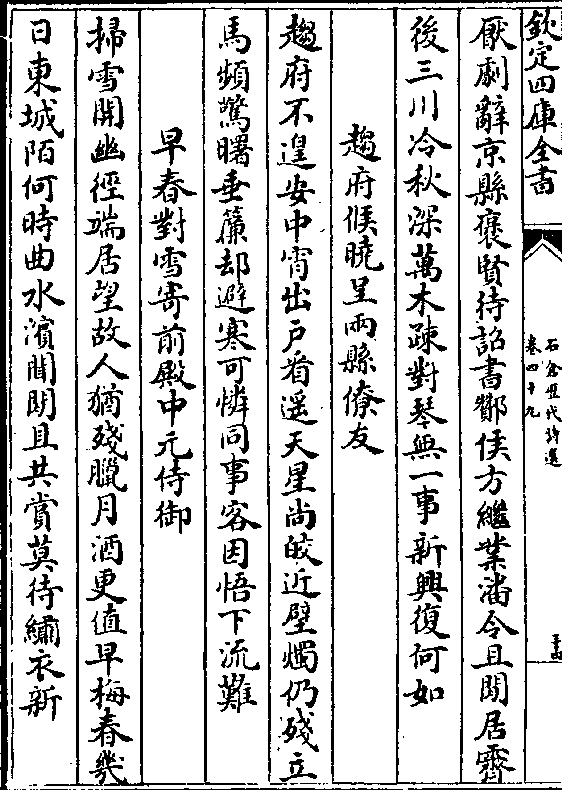 欽定四庫全書
石倉歷代詩選
卷四十九
厭劇辭京縣褒賢待詔書酇侯方繼業潘令且閒居霽
後三川冷秋深萬木疎對琴無一事新興復何如
趨府候曉呈兩縣僚友
趨府不遑安中宵出戶看遥天星尚皎近壁燭仍殘立
馬頻驚曙垂簾却避寒可憐同事客因悟下流難
早春對雪寄前殿中元侍御
掃雪開幽徑端居望故人猶殘臘月酒更值早梅春幾
日東城陌何時曲水濱聞閒且共賞莫待繡衣新